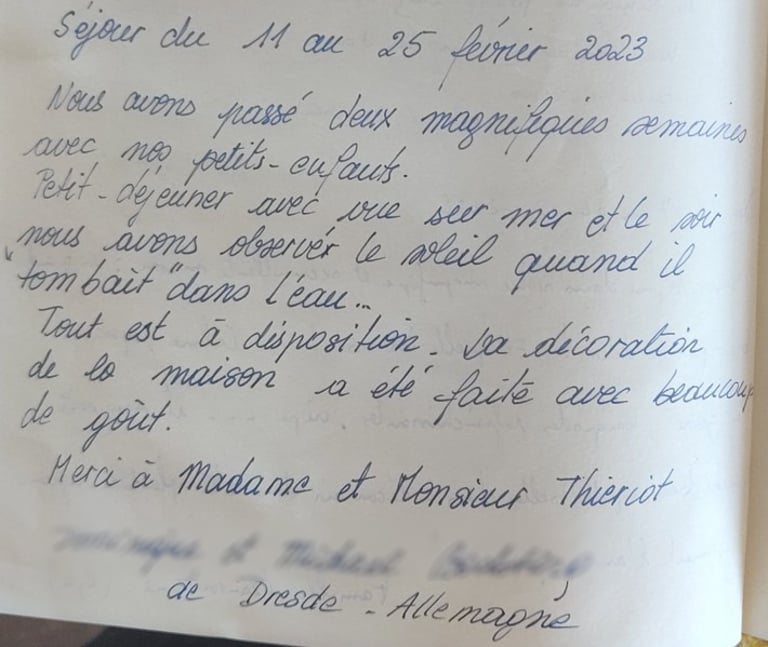 Séjour du 11 au 25 février 2023
Nous avons passé deux magnifiques semaines
avec nos petits-enfants.
Petit-déjeuner avec vue sur mer et le soir
nous avons observér le soleil quand il
"tombait" dans l'eau...
Tout est à disposition. La décoration
de la maison a été faite avec beaucoup
de goût.
Merci à Madame et Monsieur Thieriot
de Dresde - Allemagne